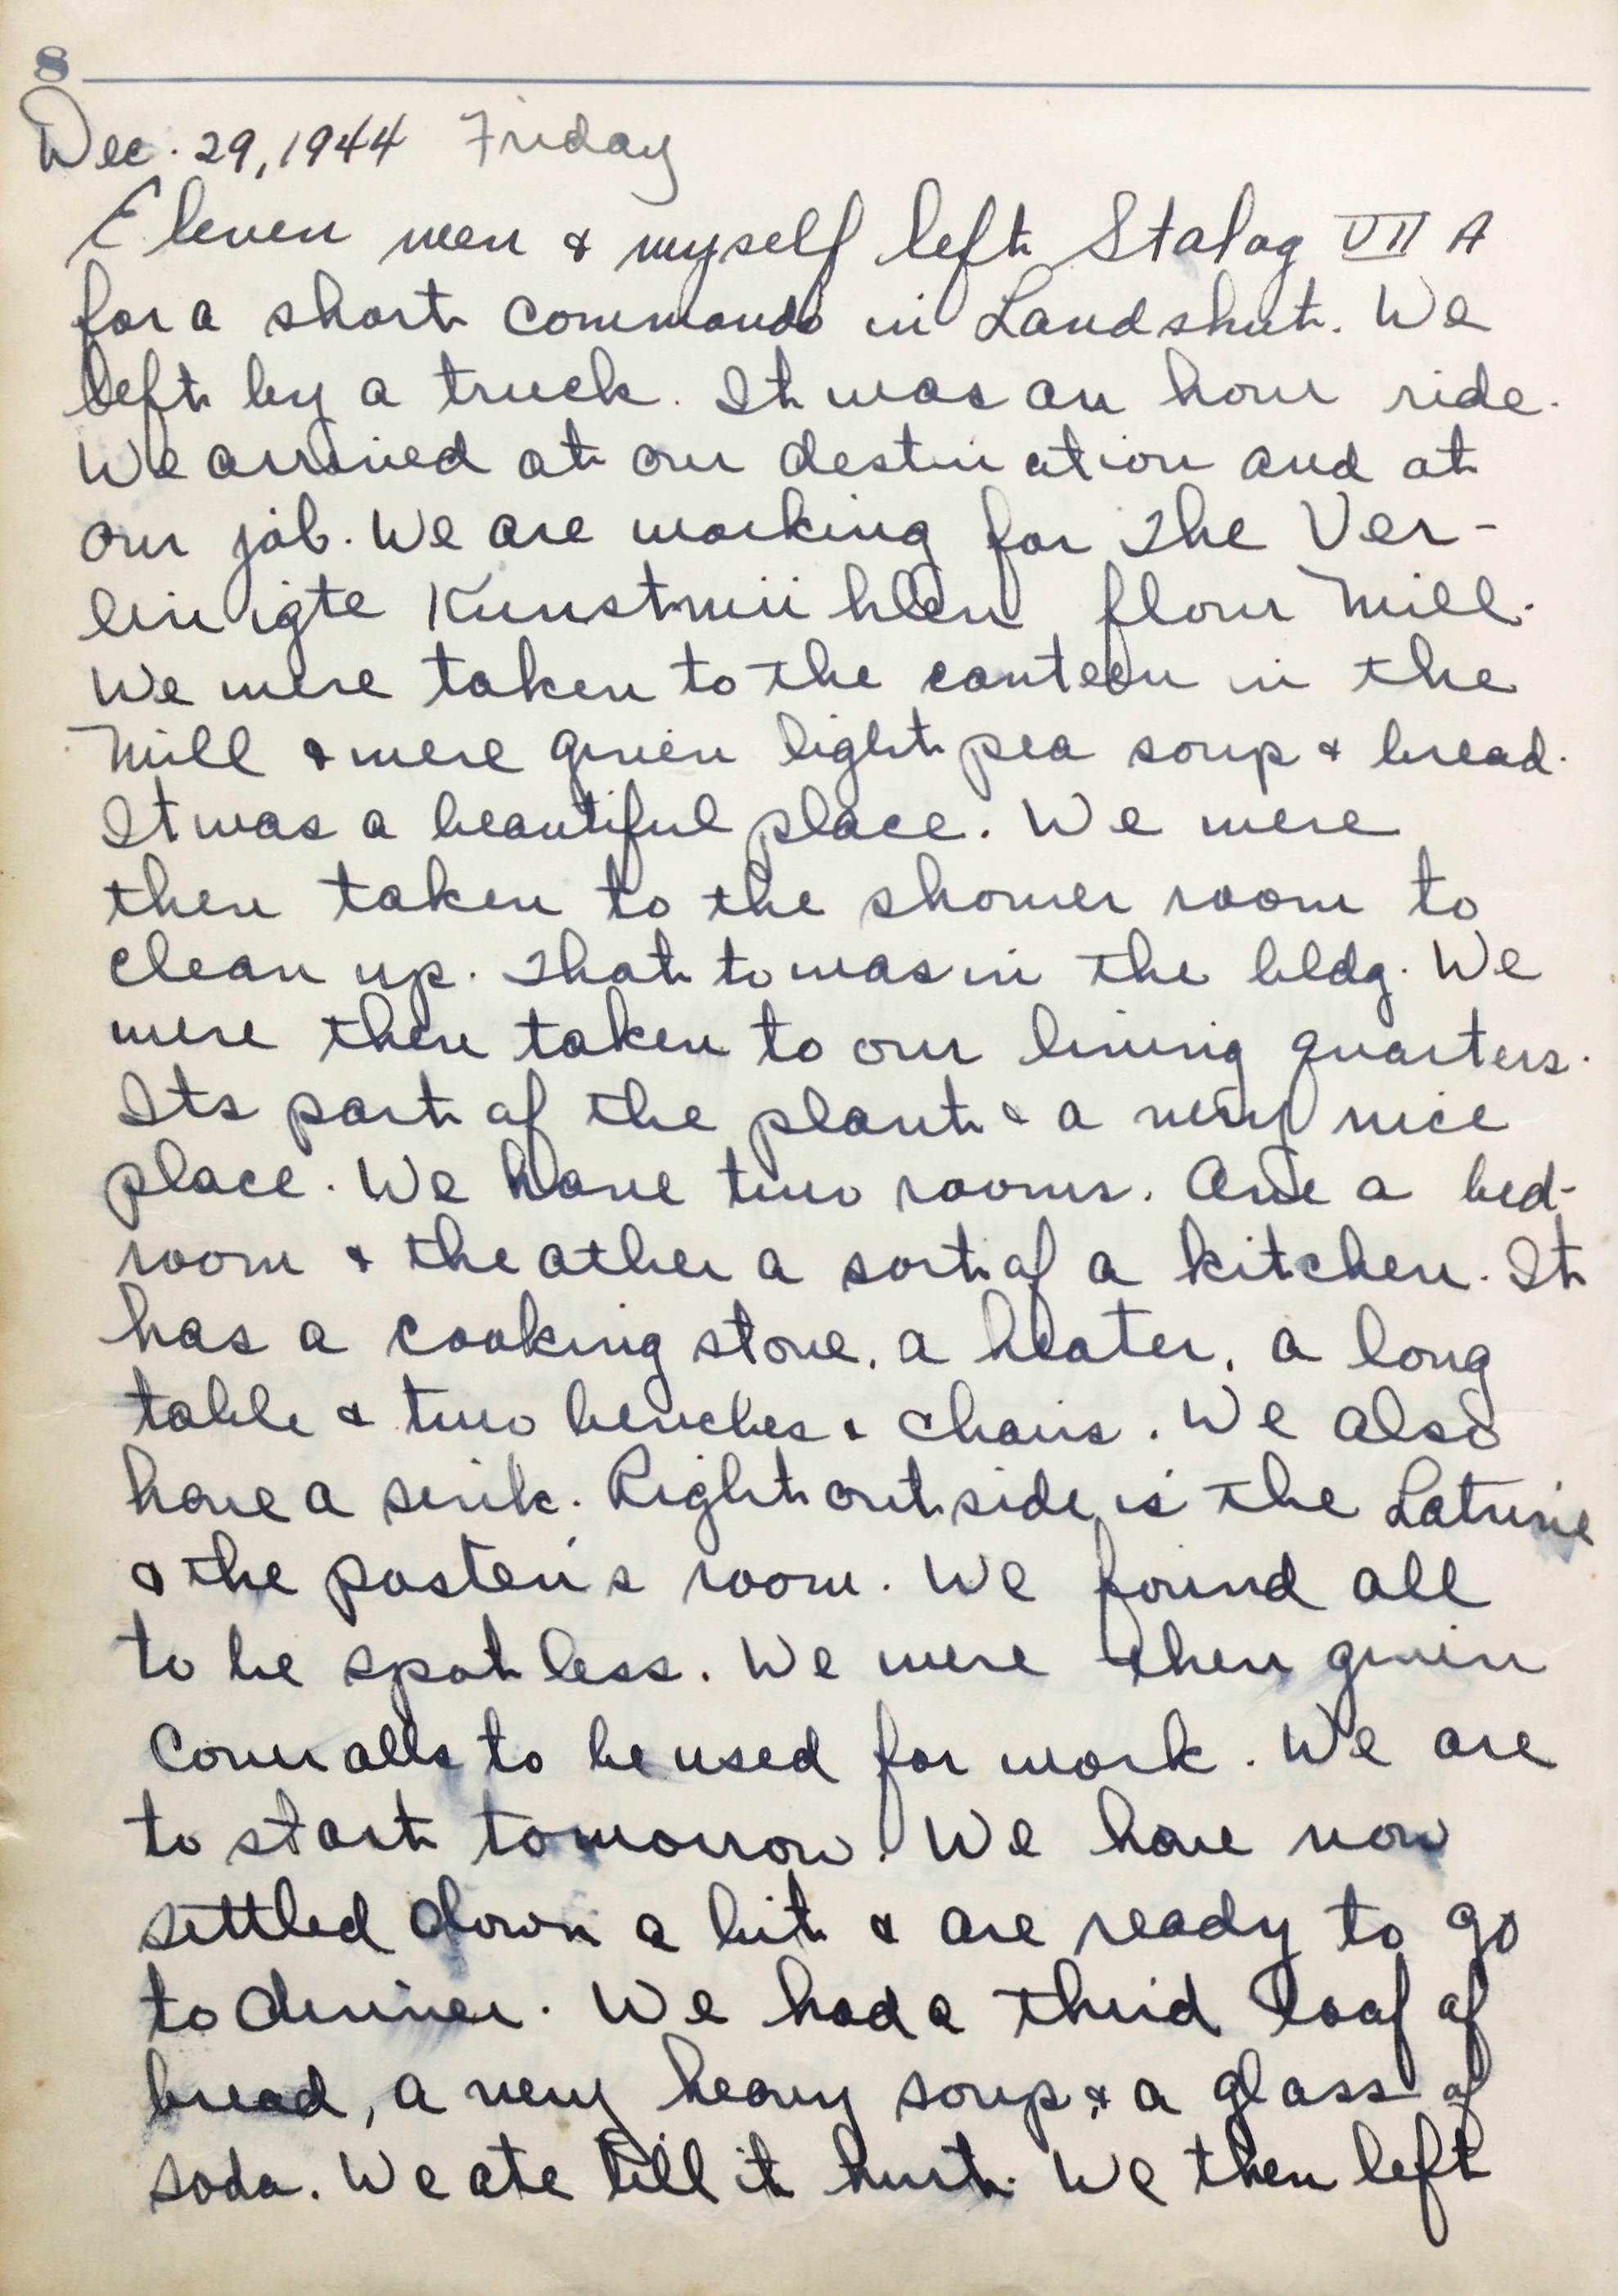 8
Dec. 29, 1944 Friday
Eleven men & myself left Stalag VII A
for a short commando in Landshut. We
left by a truck. It was an hour ride.
We arrived at our destination and at
our job. We are working for the Ver-
einigte Kunstmüihlen flour mill.
We were taken to the canteen in the
mill & were given light pea soup & bread.
It was a beautiful place. We were
then taken to the shower room to
clean up. That to was in the bldg. We
were then taken to our living quarters.
Its part of the plant & a very nice
place. We have two rooms. One a bed-
room & the other a sort of a kitchen. It
has a cooking stove, a heater, a long
table & two benches & chairs. We also
have a sink. Right outside is the Latrine
& the posten's room. We found all
to be spotless. We were then given
coveralls to be used for work. We are
to start tomorrow. We have now
settled down a bit & are ready to go
to dinner. We had a third loaf of
bread, a very heavy soup, & a glass of
soda. We ate till it hurt. We then left